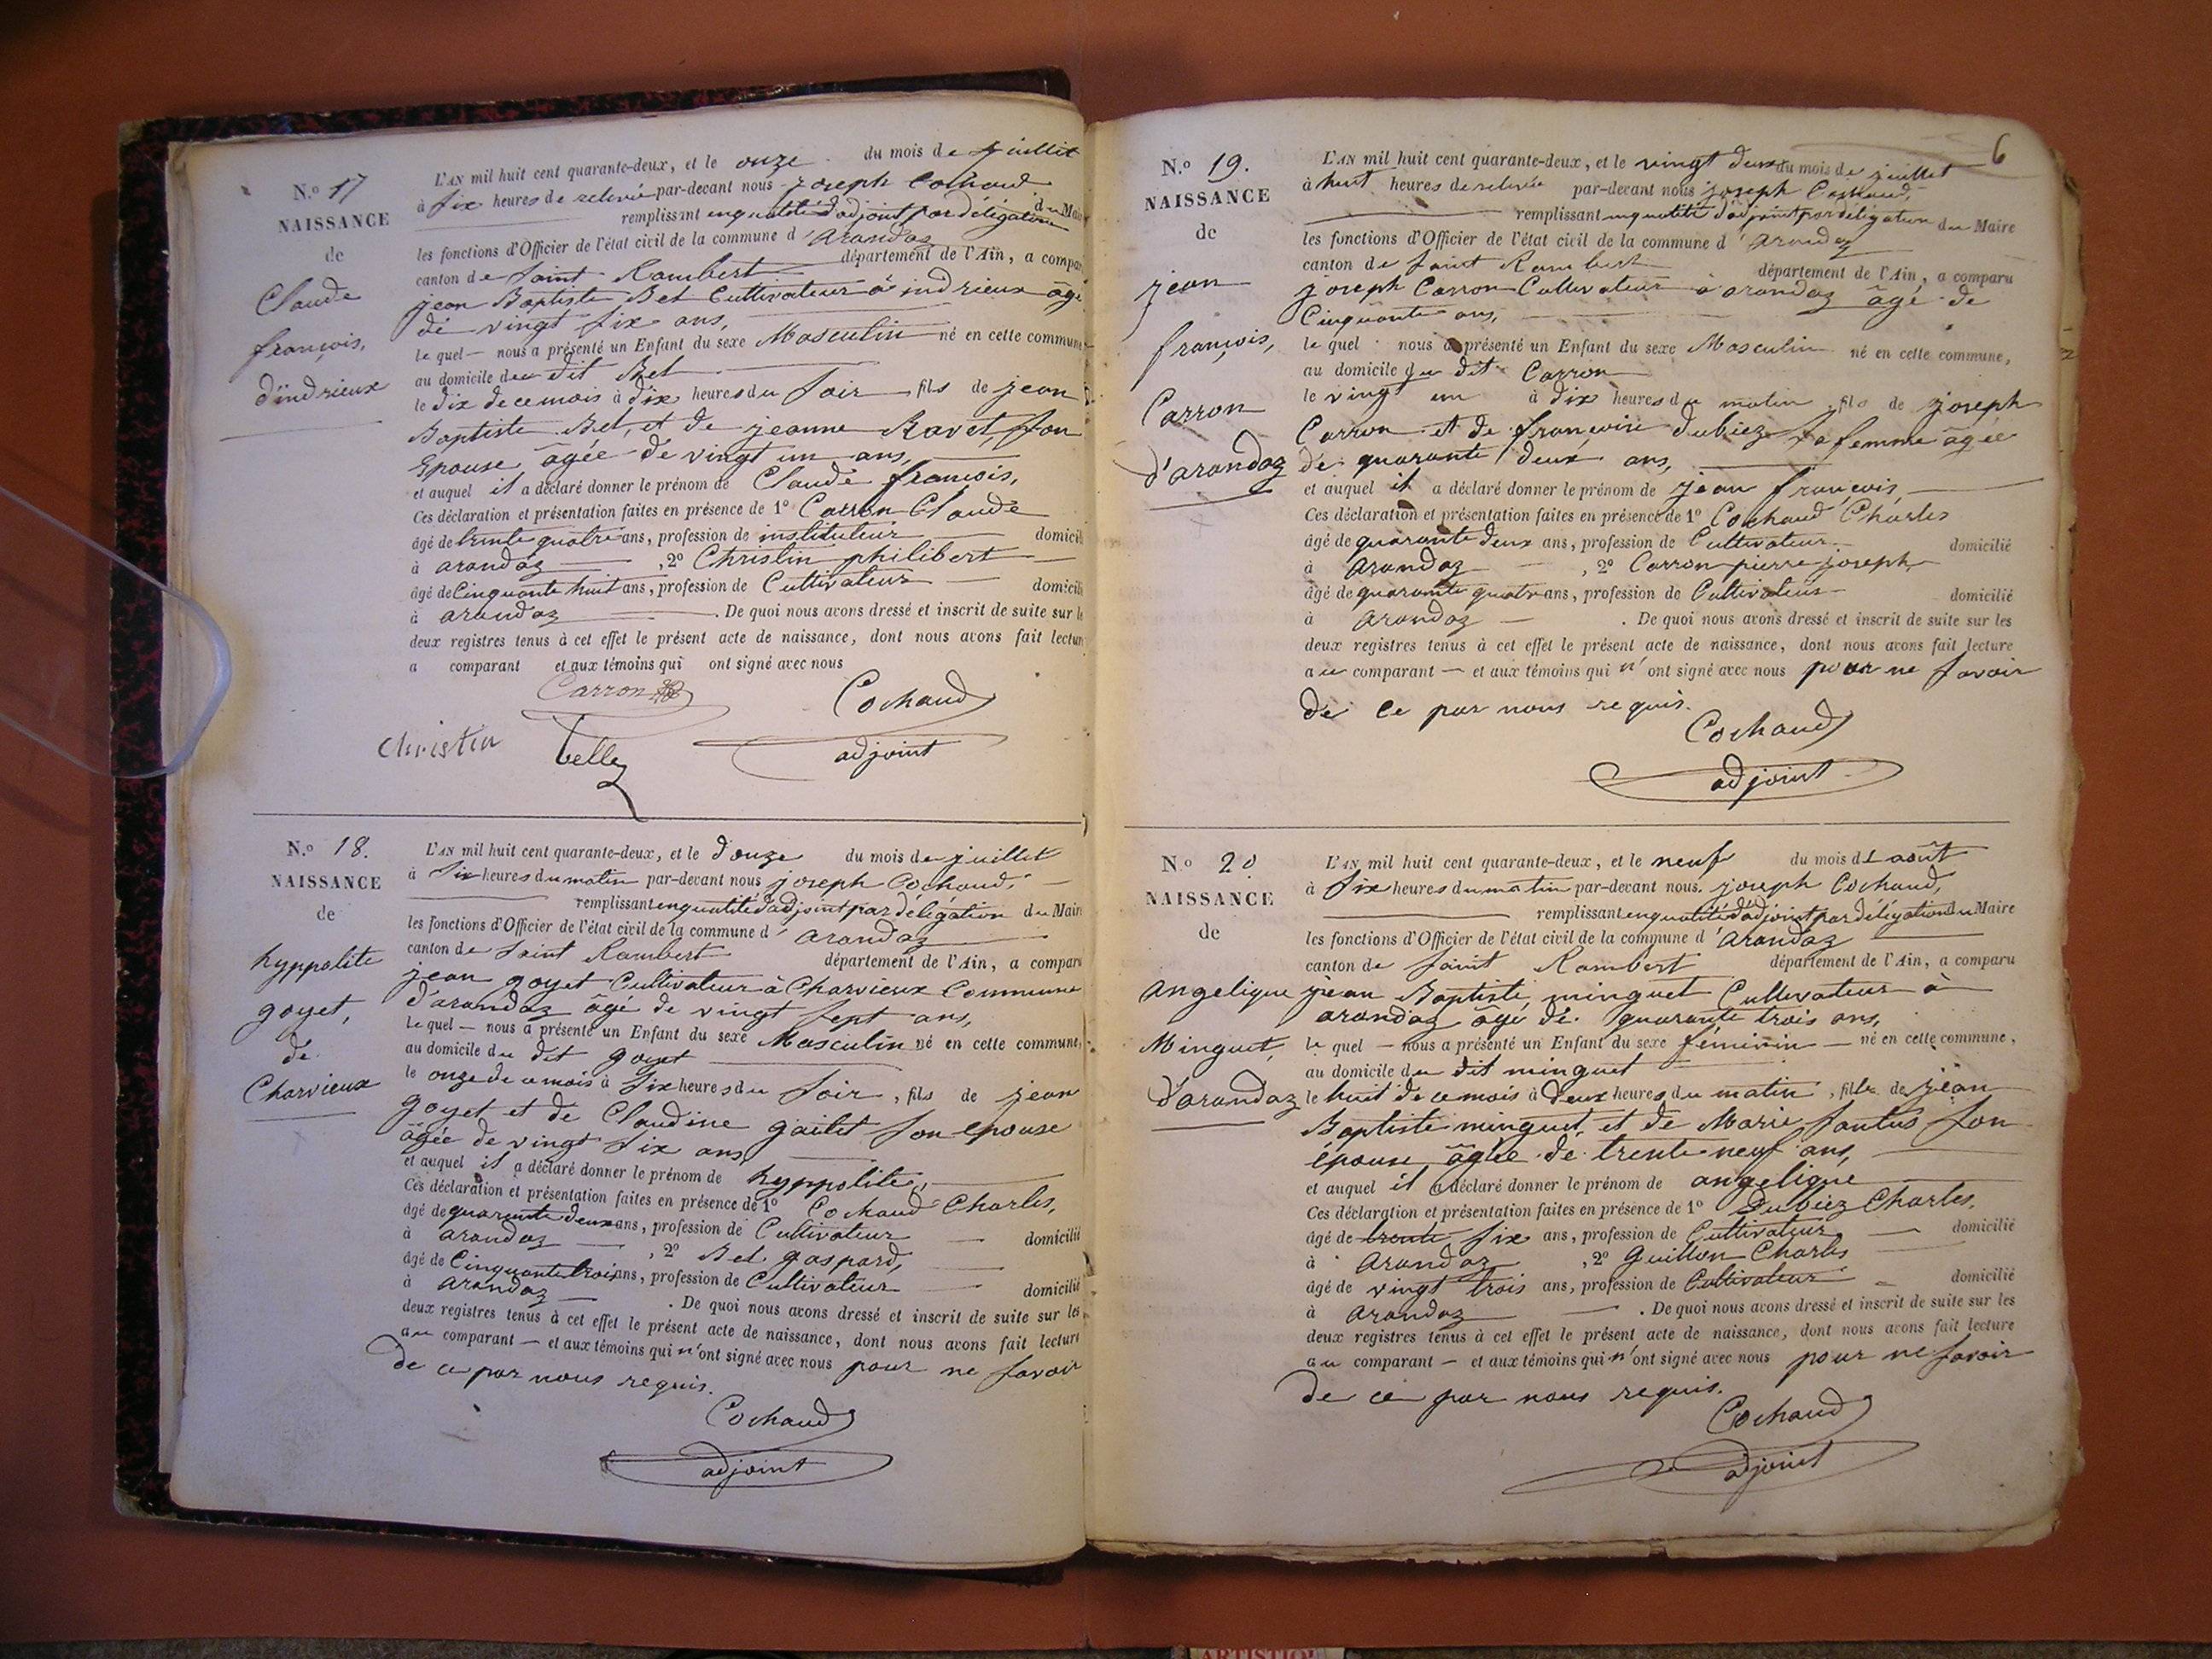 N.º 17
NAISSANCE
de
Claude
françois,
d'indrieux
L'AN mil huit cent quarante-deux, et le onze du mois de juillet
à six heures de relevée par-devant nous joseph Cochaud
remplissant en qualité d'adjoint par délégation du Maire
les fonctions d'Officier de l'état civil de la commune d'arandaz
canton de Saint Rambert département de l'Ain, a compar
jean Baptiste Bet Cultivateur à indrieux âgé
de vingt six ans,
le quel — nous a présenté un Enfant du sexe Masculin né en cette commune
au domicile du dit Bet
le dix de ce mois à dix heures du soir fils de jean
Baptiste Bet, et de jeanne Ravet, son
Epouse âgée de vingt un ans,
et auquel il a déclaré donner le prénom de Claude françois,
Ces déclaration et présentation faites en présence de 1º Carron Claude
âgé de trente quatre ans, profession de instituteur domicili
à arandaz , 2º Christin philibert
âgé de Cinquante huit ans, profession de Cultivateur domicili
à arandaz . De quoi nous avons dressé et inscrit de suite sur le
deux registres tenus à cet effet le présent acte de naissance, dont nous avons fait lectur
a comparant et aux témoins qui ont signé avec nous
Carron
Cochaud
Christin
adjoint
N.º 18.
NAISSANCE
de
hyppolite
goyet,
de
Charvieux
L'AN mil huit cent quarante-deux, et le douze du mois de juillet
à six heures du matin par-devant nous joseph Cochaud,
remplissant en qualité d'adjoint par délégation du Mair
les fonctions d'Officier de l'état civil de la commune d'arandaz
canton de Saint Rambert département de l'Ain, a comparu
jean goyet Cultivateur à Charvieux Commune
d'arandaz âgé de vingt sept ans,
le quel — nous a présenté un Enfant du sexe Masculin né en cette commune,
au domicile du dit goyet
le onze de ce mois à six heures du soir, fils de jean
goyet et de Claudine gailet son épouse
âgée de vingt six ans
et auquel il a déclaré donner le prénom de hyppolite,
Ces déclaration et présentation faites en présence de 1º Cochaud Charles,
âgé de quarante deux ans, profession de Cultivateur
à arandaz , 2º Bet gaspard, domicilié
âgé de Cinquante trois ans, profession de Cultivateur
à arandaz . De quoi nous avons dressé et inscrit de suite sur les domicilié
deux registres tenus à cet effet le présent acte de naissance, dont nous avons fait lecture
au comparant — et aux témoins qui n'ont signé avec nous pour ne savoir
de ce par nous requis.
Cochaud
adjoint
6
N.º 19.
NAISSANCE
de
jean
françois,
Carron
d'arandaz
L'AN mil huit cent quarante-deux, et le vingt deux du mois de juillet
à huit heures de relevée par-devant nous joseph Cochaud,
remplissant en qualité d'adjoint par délégation du Maire
les fonctions d'Officier de l'état civil de la commune d'arandaz
canton de Saint Rambert département de l'Ain, a comparu
joseph Carron Cultivateur à arandaz âgé de
Cinquante ans,
le quel nous a présenté un Enfant du sexe Masculin né en cette commune,
au domicile du dit Carron
le vingt un à dix heures du matin, fils de joseph
Carron et de françoise dubiez sa femme âgée
de quarante deux ans,
et auquel il a déclaré donner le prénom de jean françois,
Ces déclaration et présentation faites en présence de 1º Cochaud Charles
âgé de quarante deux ans, profession de Cultivateur domicilié
à arandaz , 2º Carron pierre joseph,
âgé de quarante quatre ans, profession de Cultivateur domicilié
à arandaz . De quoi nous avons dressé et inscrit de suite sur les
deux registres tenus à cet effet le présent acte de naissance, dont nous avons fait lecture
au comparant — et aux témoins qui n'ont signé avec nous pour ne savoir
de ce par nous requis.
Cochaud
adjoint
Nº 20
NAISSANCE
de
Angelique
Minguet,
d'arandaz
L'AN mil huit cent quarante-deux, et le neuf du mois d'août
à six heures du matin par-devant nous joseph Cochaud,
remplissant en qualité d'adjoint par délégation du Maire
les fonctions d'Officier de l'état civil de la commune d'arandaz
canton de Saint Rambert département de l'Ain, a comparu
jean Baptiste minguet Cultivateur à
arandaz âgé de quarante trois ans,
le quel — nous a présenté un Enfant du sexe féminin — né en cette commune,
au domicile du dit minguet
le huit de ce mois à deux heures du matin, fille de jean
Baptiste minguet, et de Marie son
épouse âgée de trente neuf ans,
et auquel il a déclaré donner le prénom de angelique
Ces déclaration et présentation faites en présence de 1º Dubiez Charles,
âgé de trente six ans, profession de Cultivateur domicilié
à arandaz , 2º Guillon Charles
âgé de vingt trois ans, profession de Cultivateur domicilié
à arandaz . De quoi nous avons dressé et inscrit de suite sur les
deux registres tenus à cet effet le présent acte de naissance, dont nous avons fait lecture
au comparant — et aux témoins qui n'ont signé avec nous pour ne savoir
de ce par nous requis.
Cochaud
adjoint